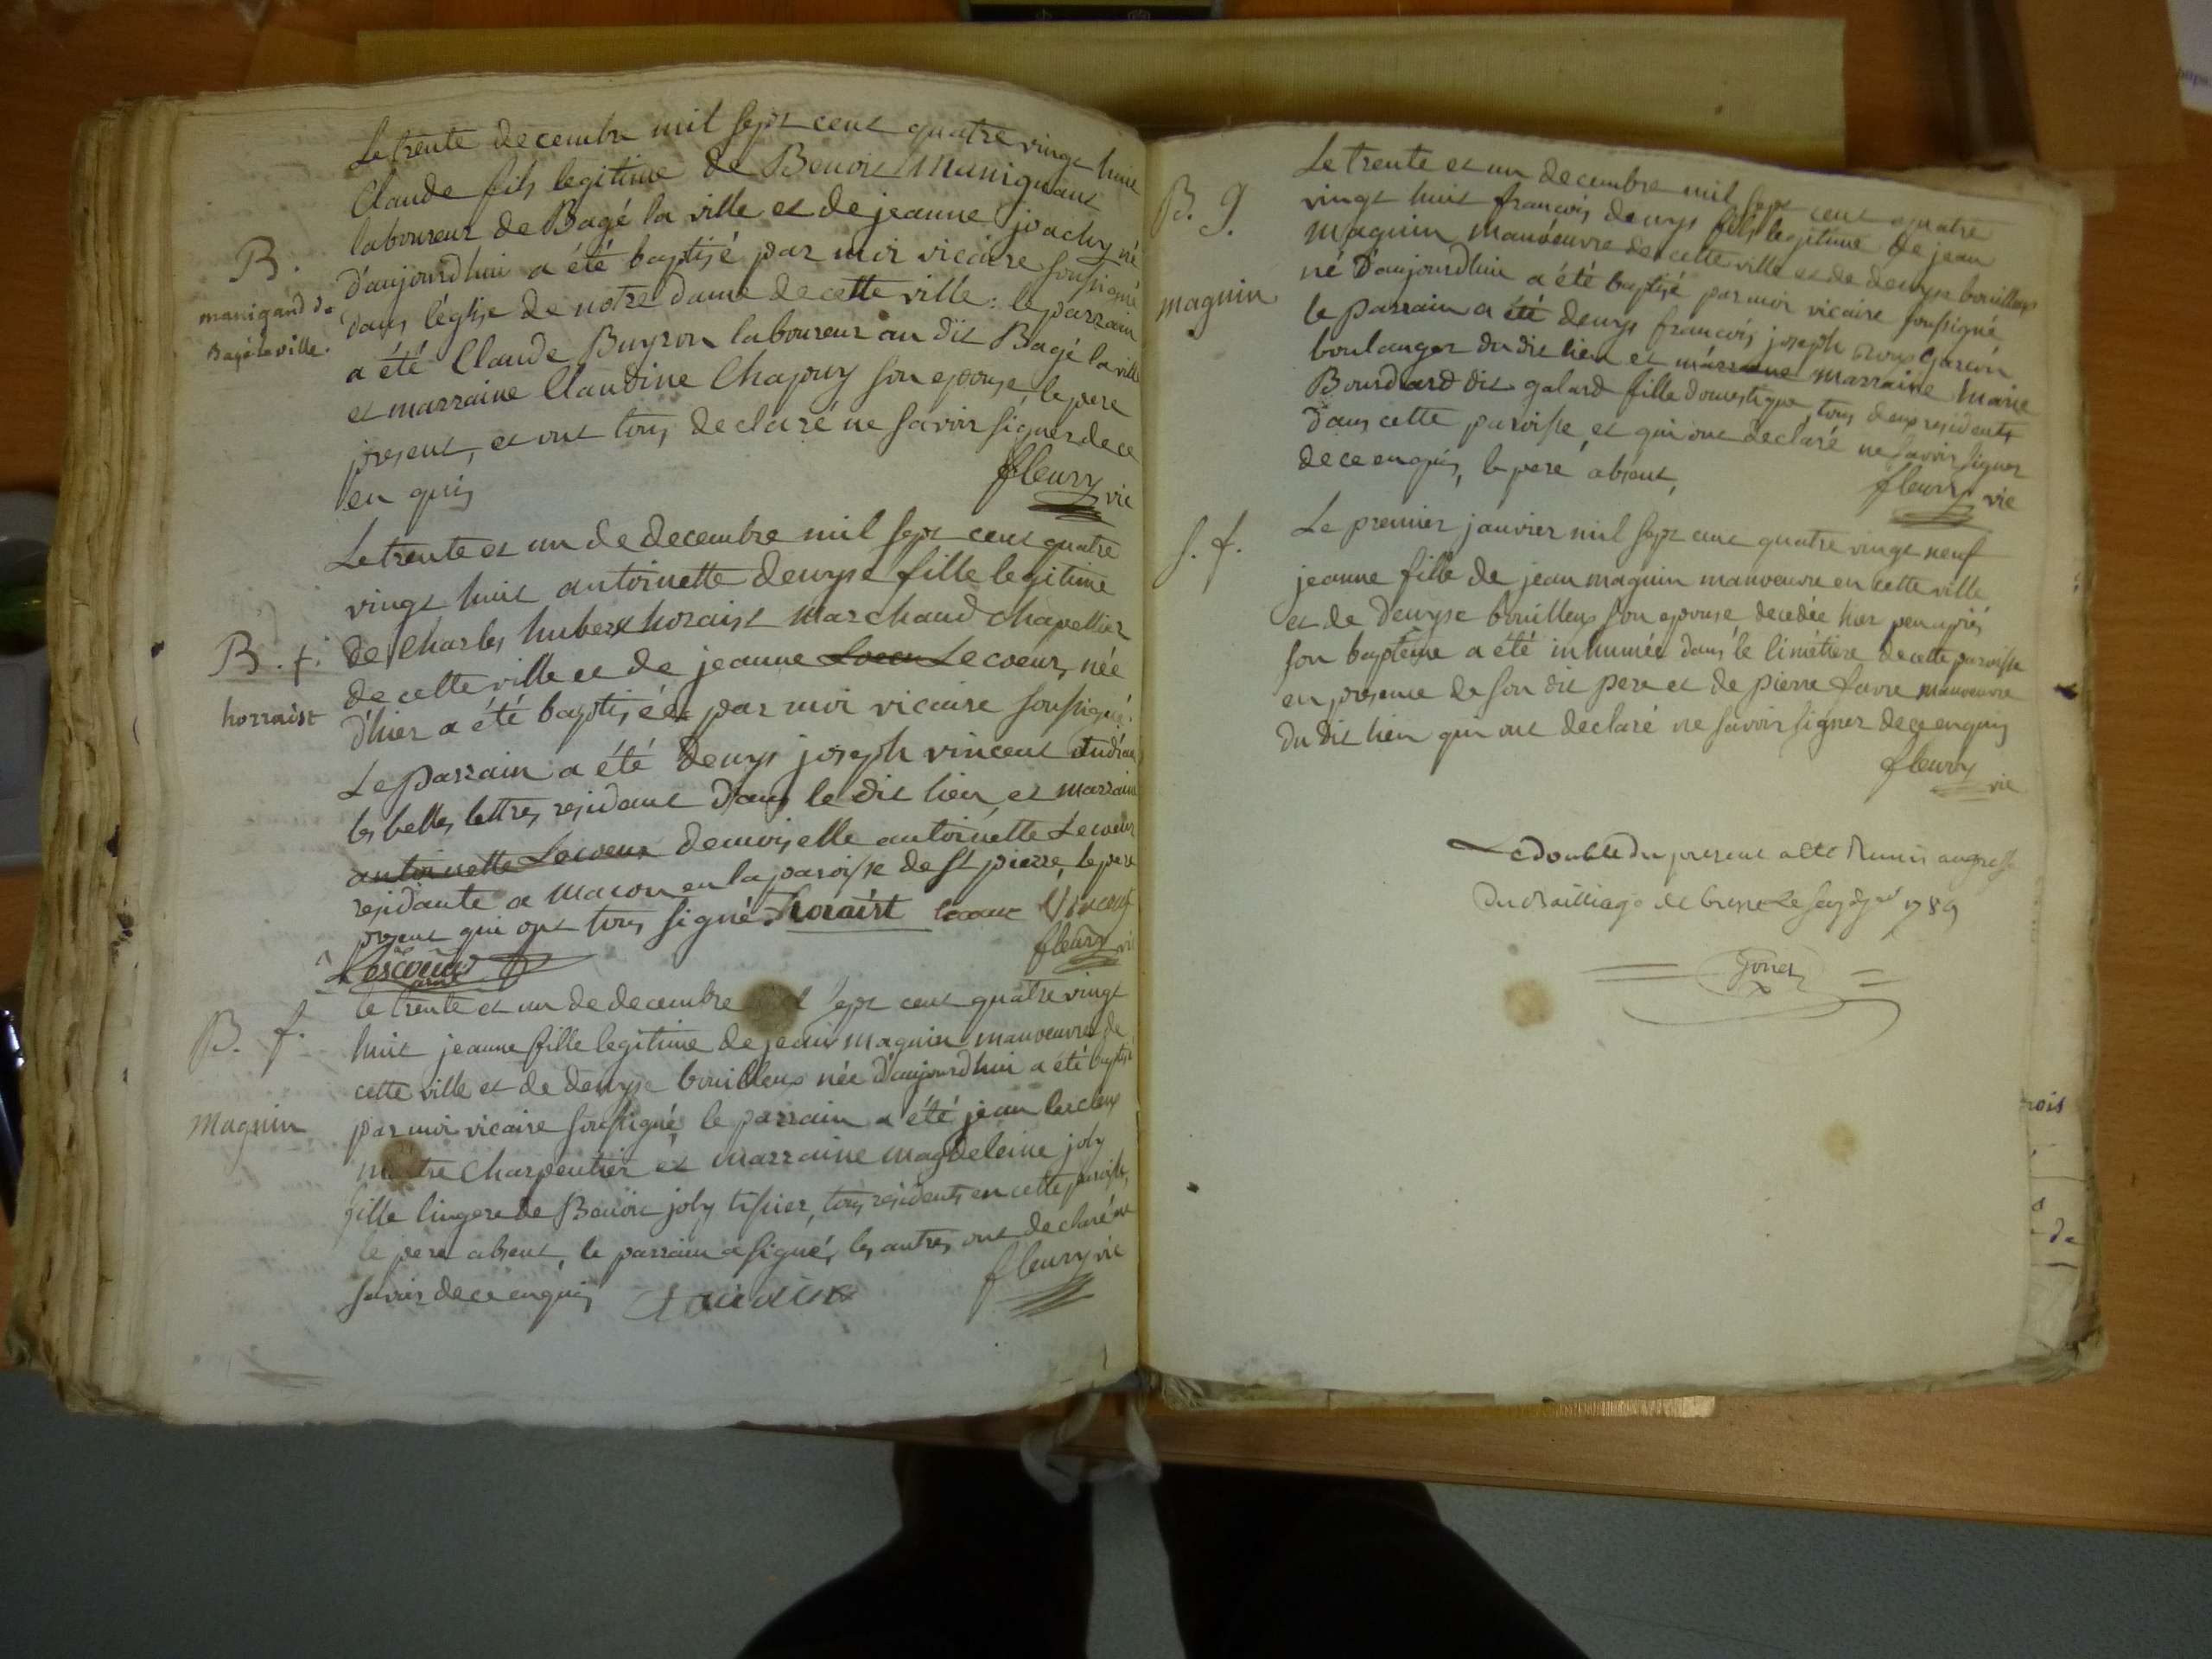 Le trente decembre mil sept cent quatre vingt huit
Claude fils legitime de Benoit Manigand
laboureur de Bagé la ville et de jeanne joachy né
d'aujourd'hui a été baptisé par moi vicaire soussigné
B.
manigand de
Bagé la ville.
dans l'église de notre dame de cette ville: le parrain
a été Claude Buyron laboureur au dit Bagé la ville
et marraine Claudine Chapuy son epouse, le pere
present, et ont tous declaré ne savoir signer de ce
en quis
fleury vic
Le trente et un de decembre mil sept cent quatre
vingt huit antoinette denyse fille legitime
B. f.
horraist
de Charles hubert horaist marchand chapellier
de cette ville et de jeanne Lecoeur, née
d'hier a été baptisée par moi vicaire soussigné.
Le parrain a été denys joseph vincent
les belles lettres residant dans le dit lieu, et marraine
antoinette Lecoeur demoiselle antoinette Lecoeur
residante a macon en la paroisse de St pierre, le pere
present qui ont tous signé. horaist Vincent
fleury vic
B. f.
Magnin
le trente et un de decembre sept cent quatre vingt
huit jeanne fille legitime de jean magnin manoeuvre de
cette ville et de denyse bouilleux née d'aujourd'hui a été baptisé
par moi vicaire soussigné, le parrain a été jean
maitre charpentier et marraine magdeleine joly
fille lingere de Benoit joly tissier, tous residents en cette paroisse,
le pere absent, le parrain a signé, les autres ont declaré ne
savoir de ce enquis
fleury vic
B. g.
magnin
Le trente et un decembre mil sept cent quatre
vingt huit francois denys fils legitime de jean
magnin manoeuvre de cette ville et de denyse bouilleux
né d'aujourd'hui a été baptisé par moi vicaire soussigné
le parrain a été denys francois joseph roux garcon
boulanger du dit lieu et marraine marraine marie
Bourdard dit galard fille domestique, tous deux residents
dans cette paroisse, et qui ont declaré ne savoir signer
de ce enquis, le pere absent,
fleury vic
S. f.
Le premier janvier mil sept cent quatre vingt neuf
jeanne fille de jean magnin manoeuvre en cette ville
et de denyse bouilleux son epouse decedée hier peu après
son baptême a été inhumée dans le cimétiere de cette paroisse
en presence de son dit pere et de pierre favre manoeuvre
du dit lieu qui ont declaré ne savoir signer de ce enquis
fleury
vic
Le double du present a été Remis au greffe
du Bailliage de bresse Le 1789